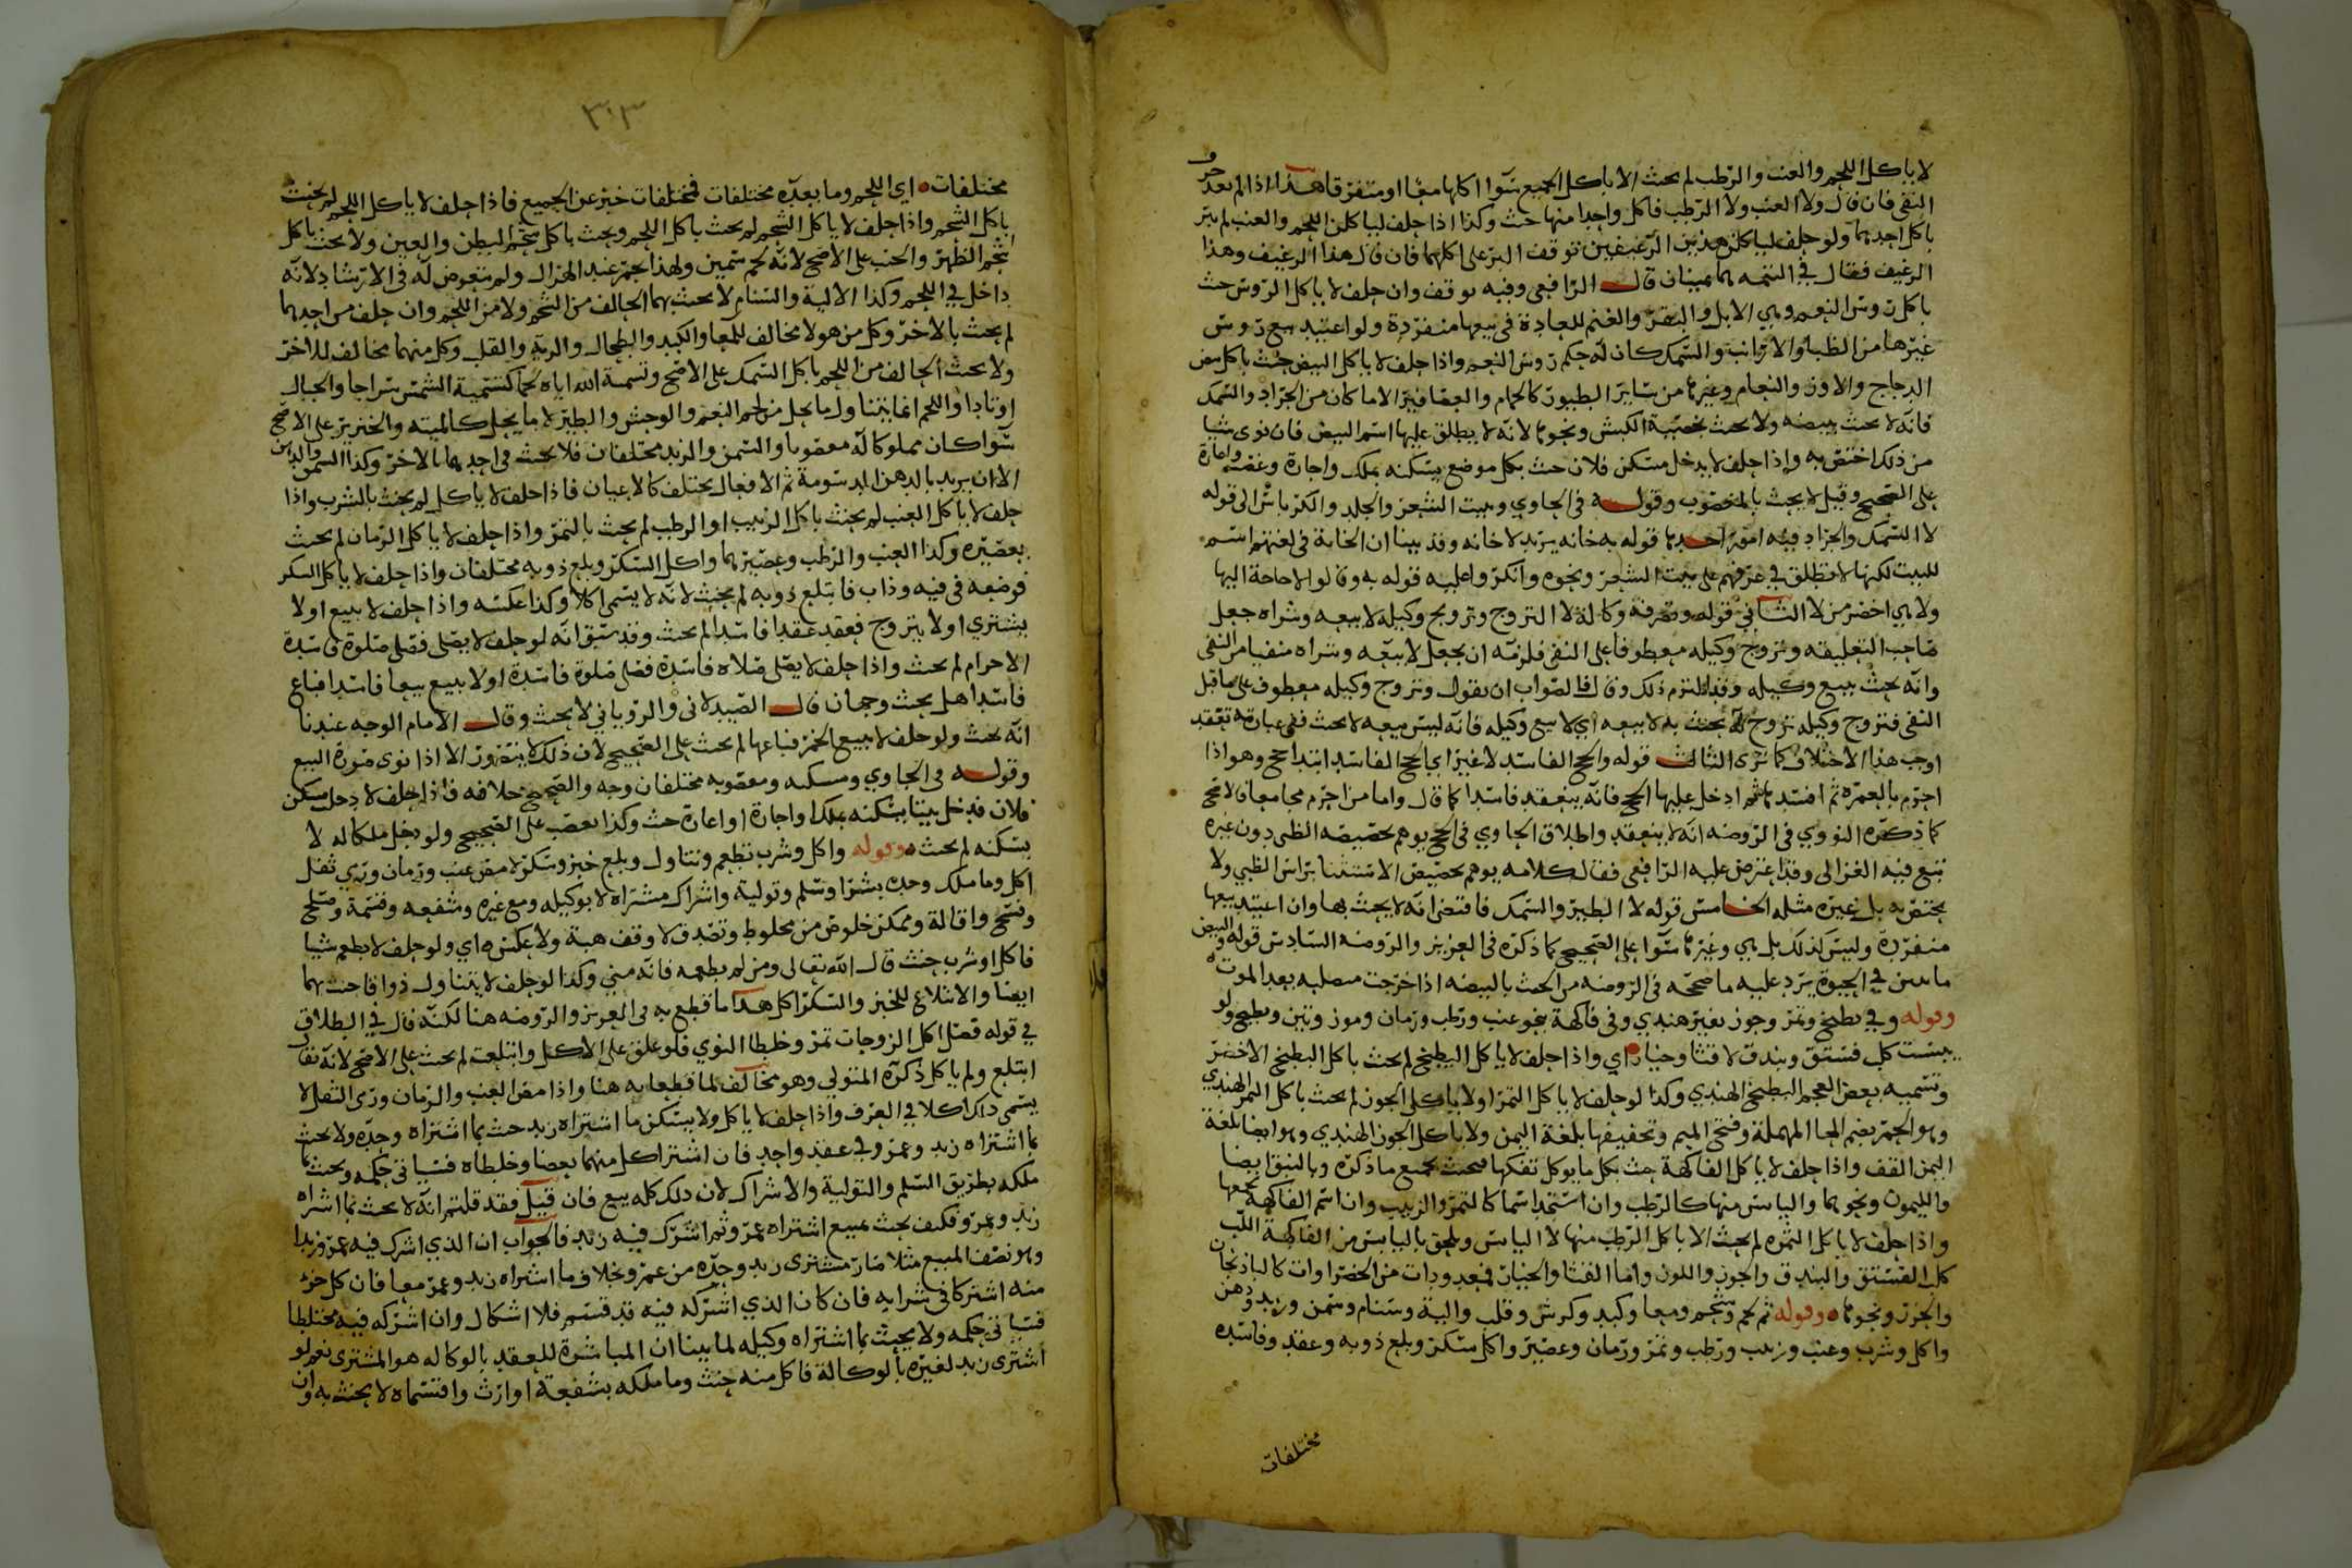 لا ياكل اللحم والعنب والرطب لم يحنث الا باكل الجميع سوا اكلها معا او متفرقا هذا اذا لم يعد حرف
النفى فان قال ولا العنب ولا الرطب فاكل واحدا منها حنث وكذا اذا حلف لياكلن اللحم والعنب لم يبر
باكل احدهما ولو حلف لياكلن هذين الرغيفين توقف البر على اكلهما فان قال هذا الرغيف وهذا
الرغيف فقال في التتمه هما يمينان قال الرافعي وفيه توقف وان حلف لا ياكل الروس حنث
باكل روس النعم وهي الابل والبقر والغنم للعادة في بيعها منفردة ولو اعتيد بيع روس
غيرها من الظبا والارانب والسمك كان له حكم روس النعم واذا حلف لا ياكل البيض حنث باكل بيض
الدجاج والاوز والنعام وغيرها من ساير الطيور كالحمام والعصافير الا ما كان من الجراد والسمك
فانه لا يحنث ببيضه ولا يحنث بخصية الكبش ونحوها لانه لا يطلق عليها اسم البيض فان نوى شيا
من ذلك اختص به واذا حلف لا يدخل مسكن فلان حنث بكل موضع يسكنه بملك واجارة وغصب واعارة
على الصحيح وقيل لا يحنث بالمغصوب وقوله في الحاوي وبيت الشعر والجلد والكرباس الى قوله
لا السمك والجراد فيه امور احدها قوله به خانه يريد لا خانه وقد بينا ان الخانة في لغتهم اسم
للبيت لكنها لا تطلق في عرفهم على بيت الشعر ونحوه وانكر واعليه قوله به وقالوا لا حاجة اليها
ولا هي اخصر من لا الثاني قوله وتصرفه وكالة لا التزوج وتزويج وكيله لا بيعه وشراه جعل
صاحب التعليقه وتزوج وكيله معطوفا على النفى فلزمه ان يجعل لا بيعه وشراه منفيا من النفى
وانه يحنث ببيع وكيله وقد التزم ذلك وقال الصواب ان يقول وتزوج وكيله معطوف على ما قبل
النفى فتزوج وكيله تزوج له يحنث به لا بيعه اي لا بيع وكيله فانه ليس بيعه لا يحنث ففى عبارته تعقيد
اوجب هذا الاختلاف كما ترى الثالث قوله والحج الفاسد لا غير اي الحج الفاسد ابتدا حج وهو اذا
احرم بالعمره ثم افسدها ثم ادخل عليها الحج فانه ينعقد فاسدا كما قال واما من احرم مجامعا فالاصح
كما ذكره النووي في الروضه انه لا ينعقد واطلاق الحاوي في الحج يوهم تخصيصه الظبى دون غيره
تبع فيه الغزالى وقد اعترض عليه الرافعي فقال كلامه يوهم تخصيص الاستثنا براس الظبي ولا
يختص به بل غيره مثله الخامس قوله لا الطير والسمك فاقتضى انه لا يحنث بها وان اعتيد بيعها
منفردة وليس كذلك بل هي وغيرها سوا على الصحيح كما ذكره في العزيز والروضه السادس قوله والبيض
ما بين في الحيوة يرد عليه ما صححه في الروضه من الحنث بالبيضه اذا خرجت مصلبه بعد الموت
وقوله وفي بطيخ وتمر وجوز بغير هندي وفى فاكهة بنحو عنب ورطب ورمان وموز وتين وبطيخ ولو
يبست كل فستق وبندق لا قثا وخيار اي واذا حلف لا ياكل البطيخ لم يحنث باكل البطيخ الاخضر
وتسميه بعض العجم البطيخ الهندي وكذا لو حلف لا ياكل التمر او لا ياكل الجوز لم يحنث باكل التمر الهندي
وهو الحمر بضم الحا المهملة وفتح الميم وتخفيفها بلغة اليمن ولا باكل الجوز الهندي وهو ايضا بلغة
اليمن القف واذا حلف لا ياكل الفاكهة حنث بكل ما يوكل تفكها فيحنث بجميع ما ذكره وبالنبق ايضا
والليمون ونحوهما واليابس منها كالرطب وان استجد اسما كالتمر والزبيب وان اسم الفاكهة يجمعها
واذا حلف لا ياكل الثمره لم يحنث الا باكل الرطب منها لا اليابس ويلحق باليابس من الفاكهة اللب
كلب الفستق والبندق والجوز واللوز واما القثا والخيار فمعدودات من الخضراوات كالباذنجان
والجزر ونحوهما وقوله ثم لحم وشحم ومعا وكبد وكرش وقلب والية وسنام وسمن وزبد ودهن
واكل وشرب وعنب وزبيب ورطب وتمر ورمان وعصير واكل سكر وبلع ذوبه وعقد وفاسده
مختلفات
٣٠٣
مختلفات اي اللحم وما بعده مختلفات فمختلفات خبر عن الجميع فاذا حلف لا ياكل اللحم لم يحنث
باكل الشحم واذا حلف لا ياكل الشحم لم يحنث باكل اللحم ويحنث باكل شحم البطن والعين ولا يحنث باكل
شحم الظهر والجنب على الاصح لانه لحم سمين ولهذا يحمر عند الهزال ولم يتعرض له في الارشاد لانه
داخل في اللحم وكذا الالية والسنام لا يحنث بهما الحالف من الشحم ولا من اللحم وان حلف من احدهما
لم يحنث بالاخر وكل من هولا مخالف للمعا والكبد والطحال والرية والقلب وكل منهما مخالف للاخر
ولا يحنث الحالف من اللحم باكل السمك على الاصح وتسمية الله اياه لحما كتسمية الشمس سراجا والجبال
اوتادا واللحم انما يتناول ما يحل من لحم النعم والوحش والطير لا ما يحل كالميته والخنزير على الاصح
سوا كان مملوكا له مغصوبا والسمن والزبد مختلفان فلا يحنث في احدهما بالاخر وكذا السمن والدهن
الا ان يريد بالدهن الدسومة ثم الافعال يختلف كالاعيان فاذا حلف لا ياكل لم يحنث بالشرب واذا
حلف لا ياكل العنب لم يحنث باكل الزبيب او الرطب لم يحنث بالتمر واذا حلف لا ياكل الرمان لم يحنث
بعصيره وكذا العنب والرطب وعصيرهما واكل السكر وبلع ذوبه مختلفان واذا حلف لا ياكل السكر
فوضعه في فيه وذاب فابتلع ذوبه لم يحنث لانه لا يسمى اكلا وكذا عكسه واذا حلف لا يبيع او لا
يشتري او لا يتزوج فعقد عقدا فاسدا لم يحنث وقد سبق انه لو حلف لا يصلى فصلى صلوة فاسدة
الاحرام لم يحنث واذا حلف لا يصلى صلاه فاسدة فصلى صلوة فاسدة او لا يبيع بيعا فاسدا فباع
فاسدا هل يحنث وجهان قال الصيدلانى والروياني لا يحنث وقال الامام الوجه عندنا
انه يحنث ولو حلف لا يبيع الخمر فباعها لم يحنث على الصحيح لان ذلك لا يتصور الا اذا نوى صورة البيع
وقوله في الحاوي ومسكنه ومغصوبه مختلفان وجه والصحيح خلافه فاذا حلف لا دخل مسكن
فلان فدخل بيتا يسكنه بملك او اجارة او اعارة حنث وكذا بغصب على الصحيح ولو دخل ملكا له لا
يسكنه لم يحنث وقوله واكل وشرب تطعم وتناول وبلع خبز وسكر لا مص عنب ورمان ورمي ثفل
اكل وما ملك وحده بشرا وسلم وتولية واشراك مشتراه لا بوكيله ومع غيره وشفعه وقسمة وصلح
وفسخ واقالة وممكن خلوص من مخلوط وتصدق لا وقف هبة ولا عكس اي ولو حلف لا يطعم شيا
فاكل او شرب حنث قال الله تعالى ومن لم يطعمه فانه مني وكذا لو حلف لا يتناول ذواقا حنث بهما
ايضا والابتلاع للخبز والسكر اكل هذا ما قطع به في العزيز والروضه هنا لكنه قال في الطلاق
في قوله فصل اكل الزوجات تمر وخلطا النوي فلو علق على الاكل وابتلعت لم يحنث على الاصح لانه يقال
ابتلع ولم ياكل ذكره المتولي وهو مخالف لما قطعا به هنا واذا مص العنب والرمان ورمى الثفل لا
يسمى ذلك اكلا في العرف واذا حلف لا ياكل ولا يسكن ما اشتراه زيد حنث بما اشتراه وحده ولا يحنث
بما اشتراه زيد وعمرو في عقد واحد فان اشترا كل منهما بعضا وخلطاه فسياتي حكمه ويحنث بما
ملكه بطريق السلم والتولية والاشراك لان ذلك كله بيع فان قيل فقد قلتم انه لا يحنث بما اشتراه
زيد وعمرو فكيف يحنث بمبيع اشتراه عمرو ثم اشرك فيه زيد فالجواب ان الذي اشرك فيه عمرو زيدا
وهو نصف المبيع مثلا صار مشترى زيد وحده من عمرو بخلاف ما اشتراه زيد وعمرو معا فان كل جزء
منه اشتركا في شرايه فان كان الذي اشركه فيه قد قسم فلا اشكال وان اشركه فيه مختلطا
فسياتي حكمه ولا يحنث بما اشتراه وكيله لما بينا ان المباشرة للعقد بالوكاله هو المشترى نعم لو
اشترى زيد لغيره بالوكالة فاكل منه حنث وما ملكه بشفعة او ارث واقتسماه لا يحنث به وان